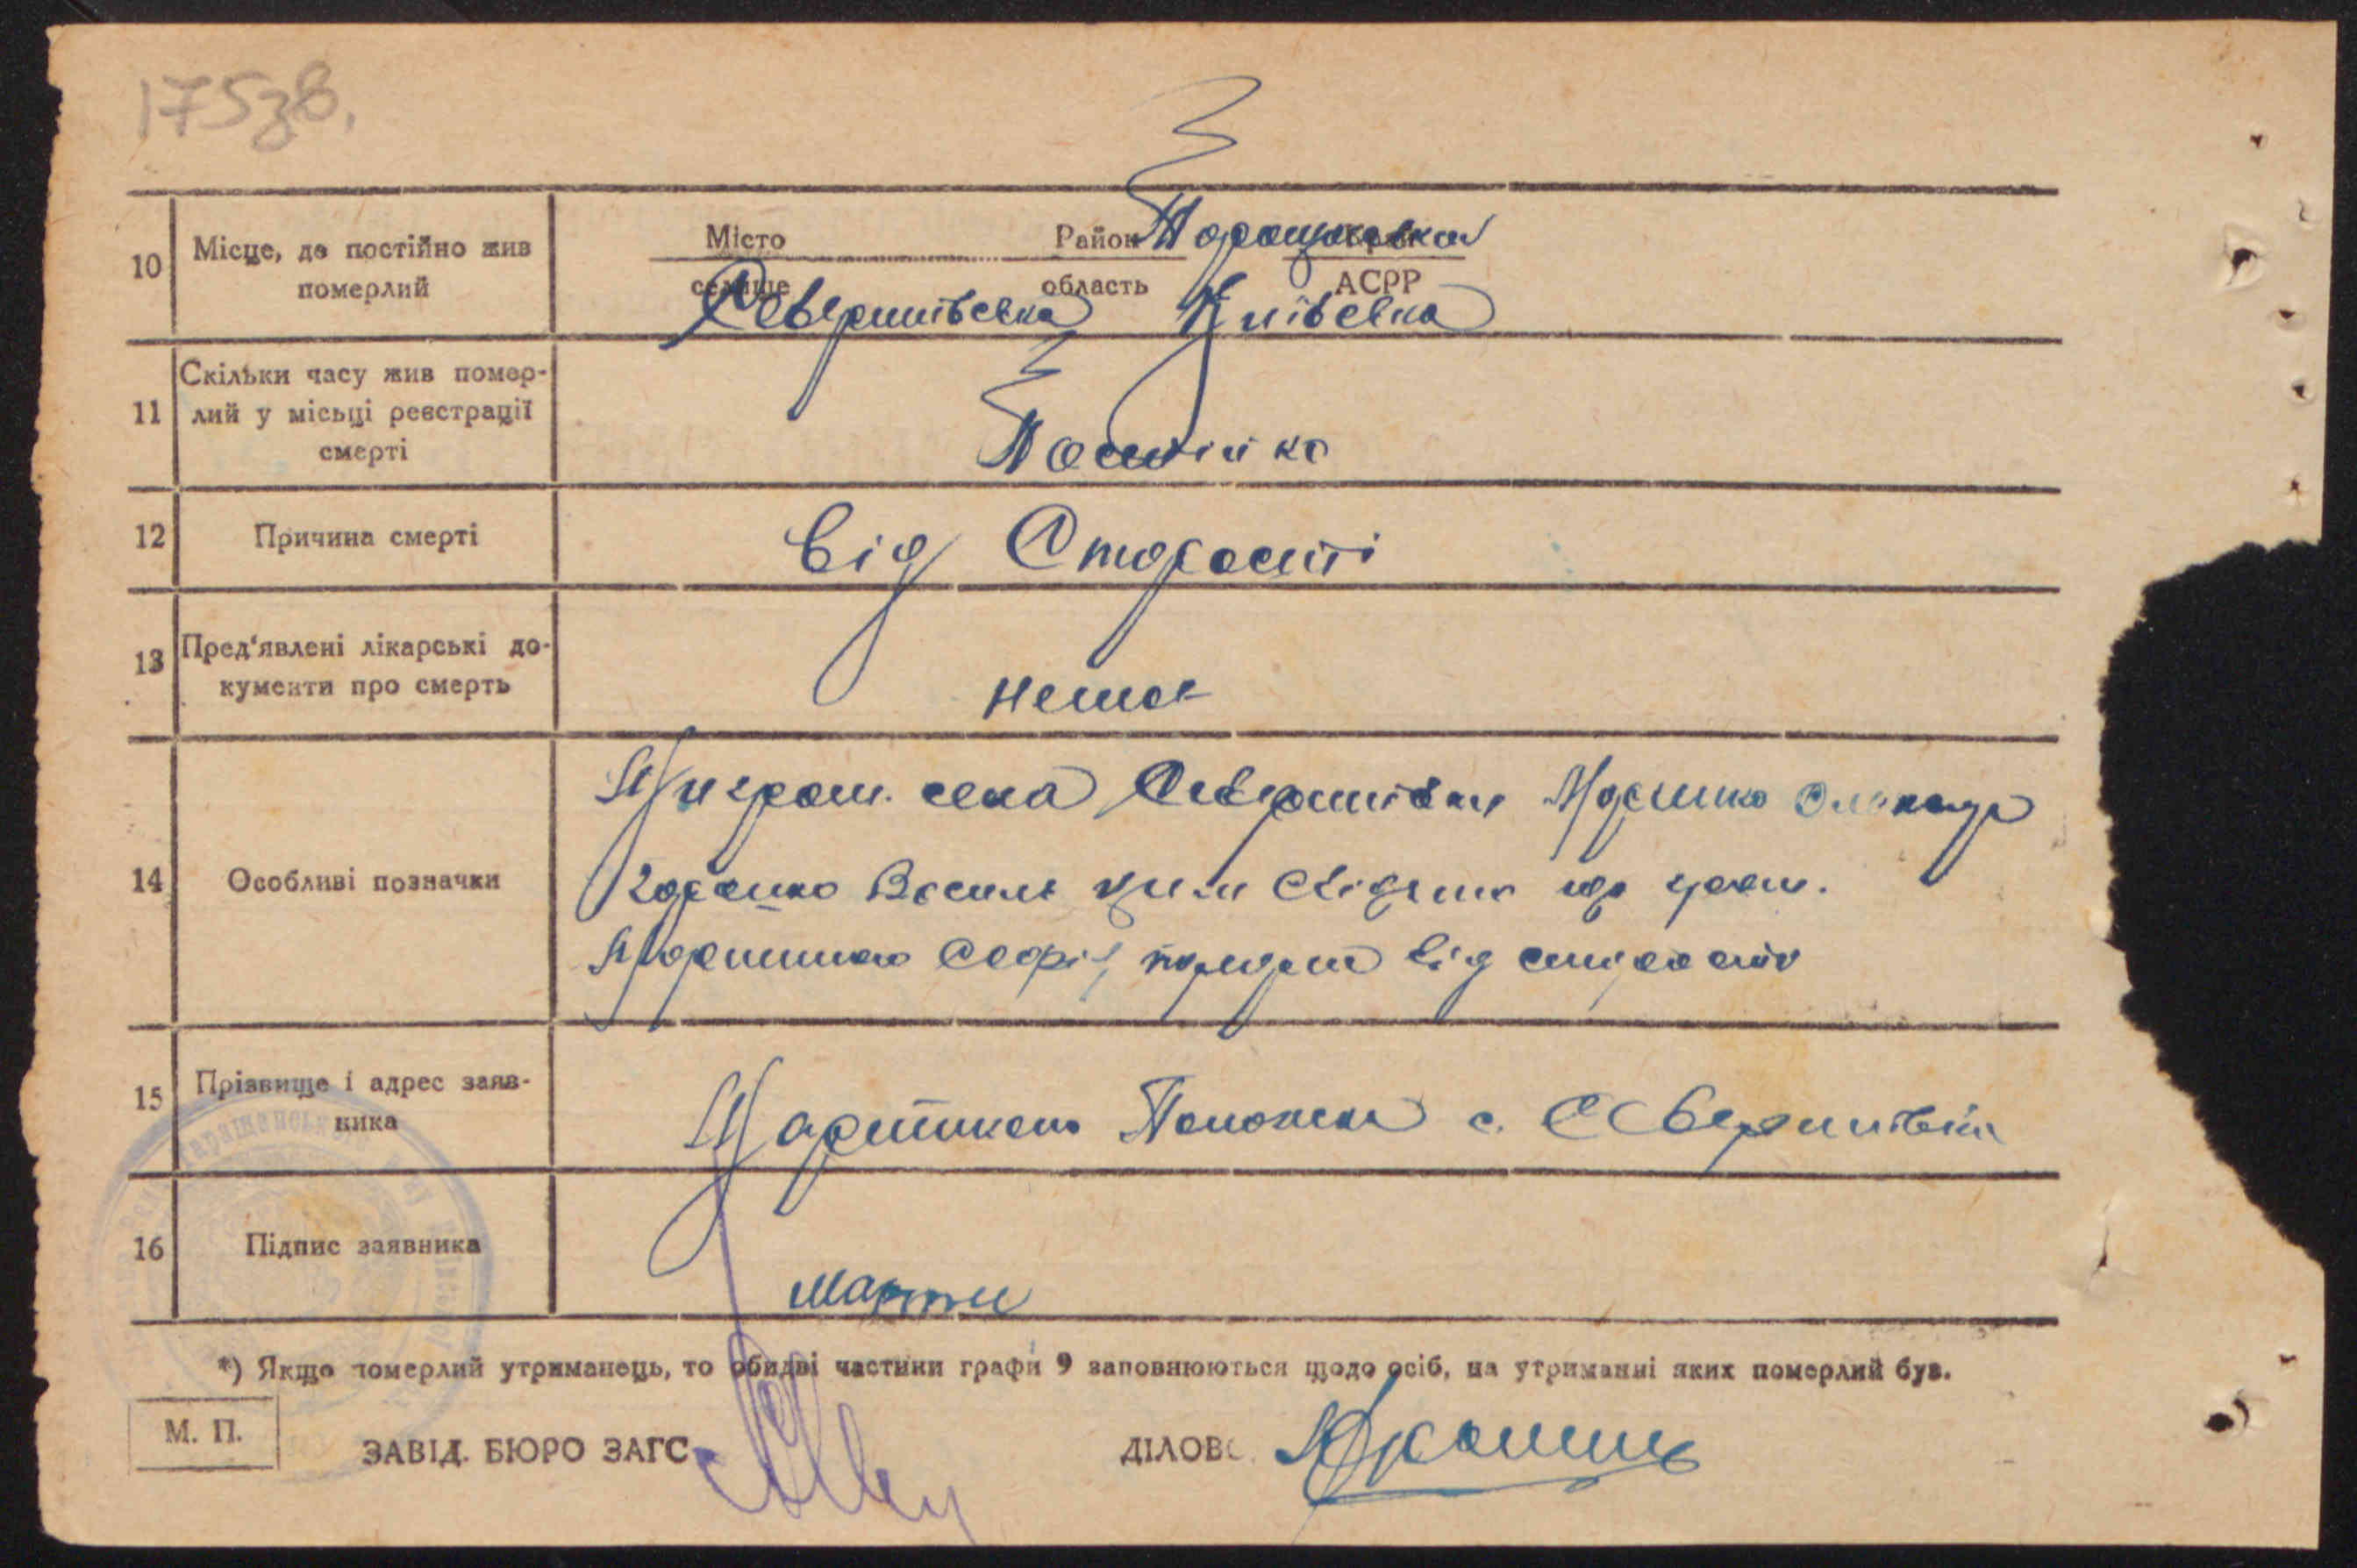 175зв.
10 Місце, де постійно жив померлий
Місто Район Торощанський
селище область АСРР
Северинівська Київська
11 Скільки часу жив помер-
лий у місьці реєстрації
смерті
Постійно
12 Причина смерті
Від Старості
13 Пред'явлені лікарські до-
кументи про смерть
немає
14 Особливі позначки
села Северинівки
Василь цим свідчимо що гром.
Мартиненко Софія, померла від старости
15 Прізвище і адрес заяв-
ника
Мартиненко с. Северинівки
16 Підпис заявника
Марти
*) Якщо померлий утриманець, то обидві частини графи 9 заповнюються щодо осіб, на утриманні яких померлий був.
М. П.
ЗАВІД. БЮРО ЗАГС
ДІЛОВ